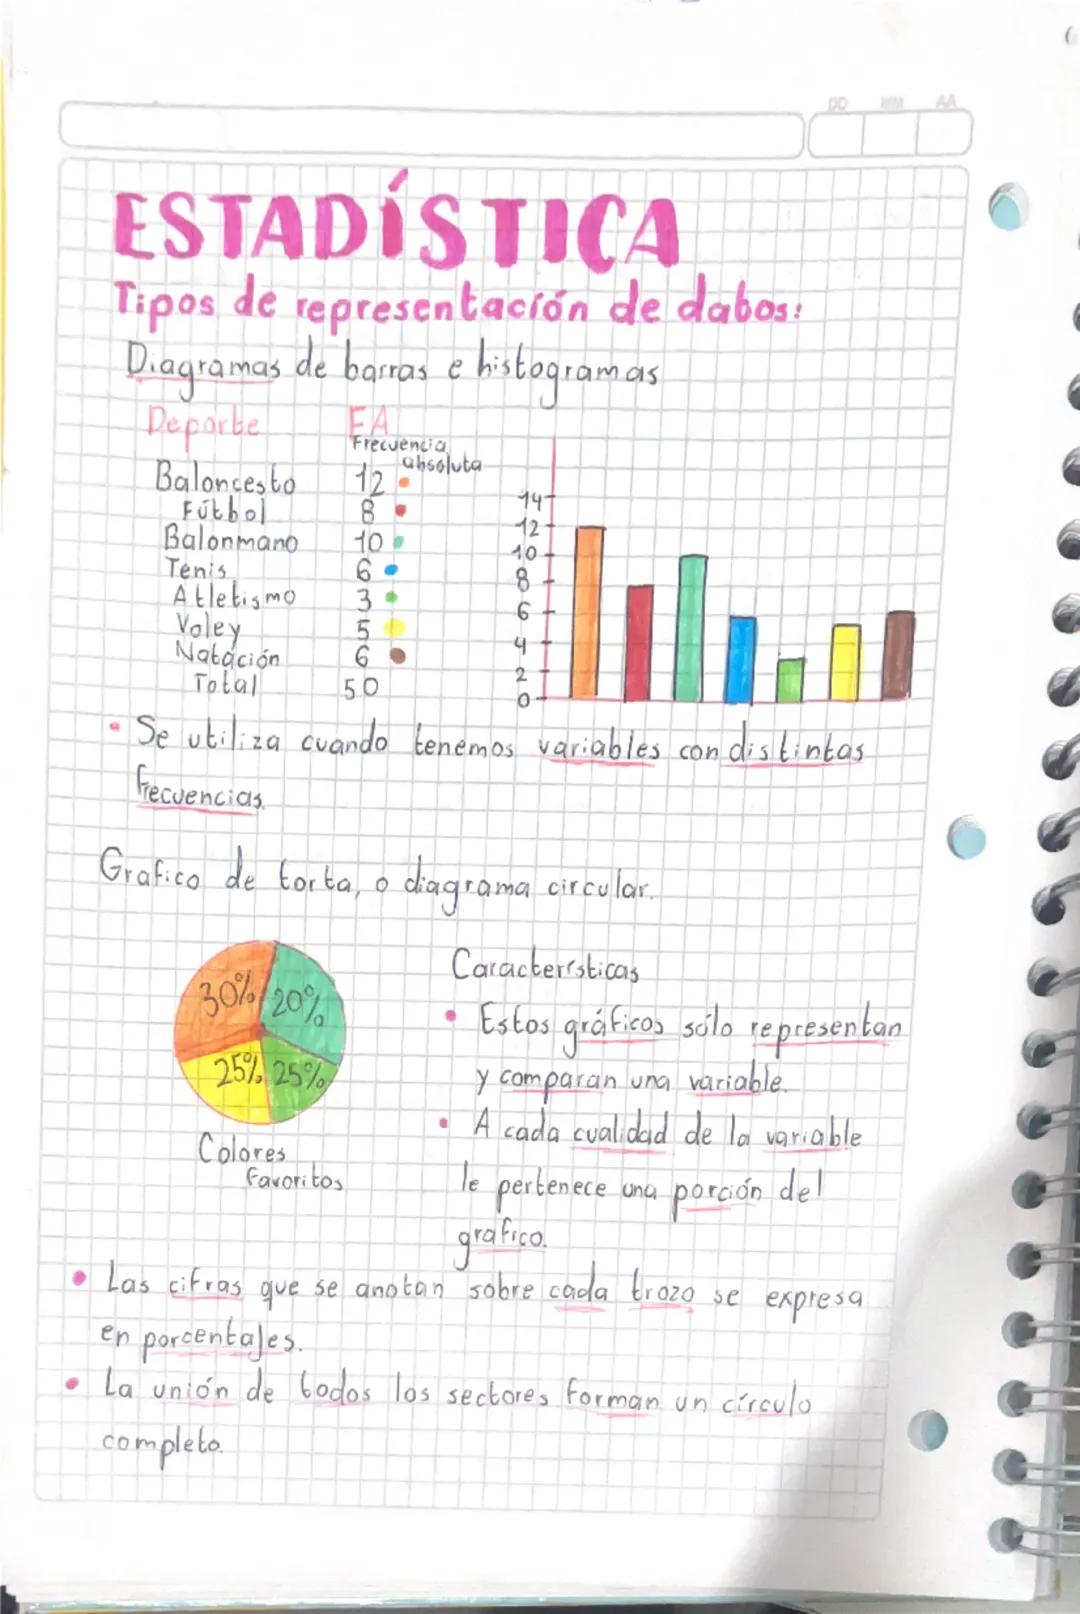 DD MM AA
ESTADÍSTICA
Tipos de representación de datos:
Diagramas de barras e histogramas
Deporte FA
Frecuencia
absoluta
Baloncesto 12
Fútbol 8
Balonmano 10
Tenis 6
Atletismo 3
Voley 5
Natación 6
Total 50
14
12
10
8
6
4
2
0
• Se utiliza cuando tenemos variables con distintas
frecuencias.
Grafico de torta, o diagrama circular.
30% 20%
25% 25%
Colores
favoritos
Características
• Estos gráficos sólo representan
y comparan una variable.
• A cada cualidad de la variable
le pertenece una porción del
grafico.
• Las cifras que se anotan sobre cada trozo se expresa
en porcentajes.
• La unión de todos los sectores forman un círculo
completo.